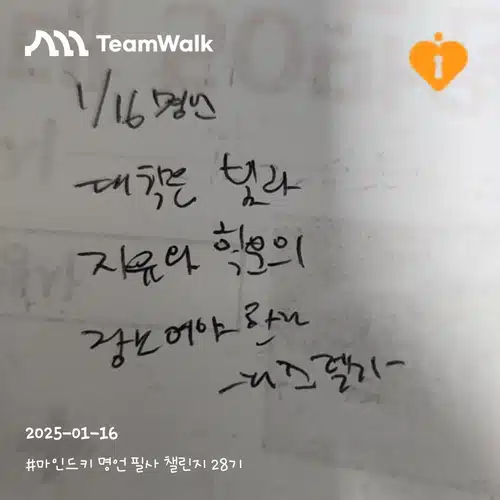 TeamWalk
1/16 명언
대학은 빛과
자유와 학문의
장소여야 한다
-디즈렐리-
2025-01-16
#마인드키 명언 필사 챌린지 28기